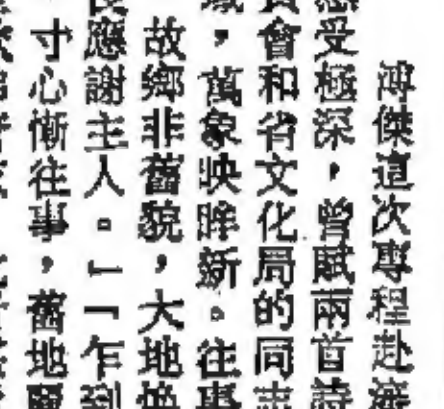 溥傑這次專程赴瀋
受極深，曾賦兩首詩
會和省文化局的同志
，萬象映眸新。往事
故鄉非舊貌，大地煥
應謝主人。」「乍到
寸心慚往事，舊地